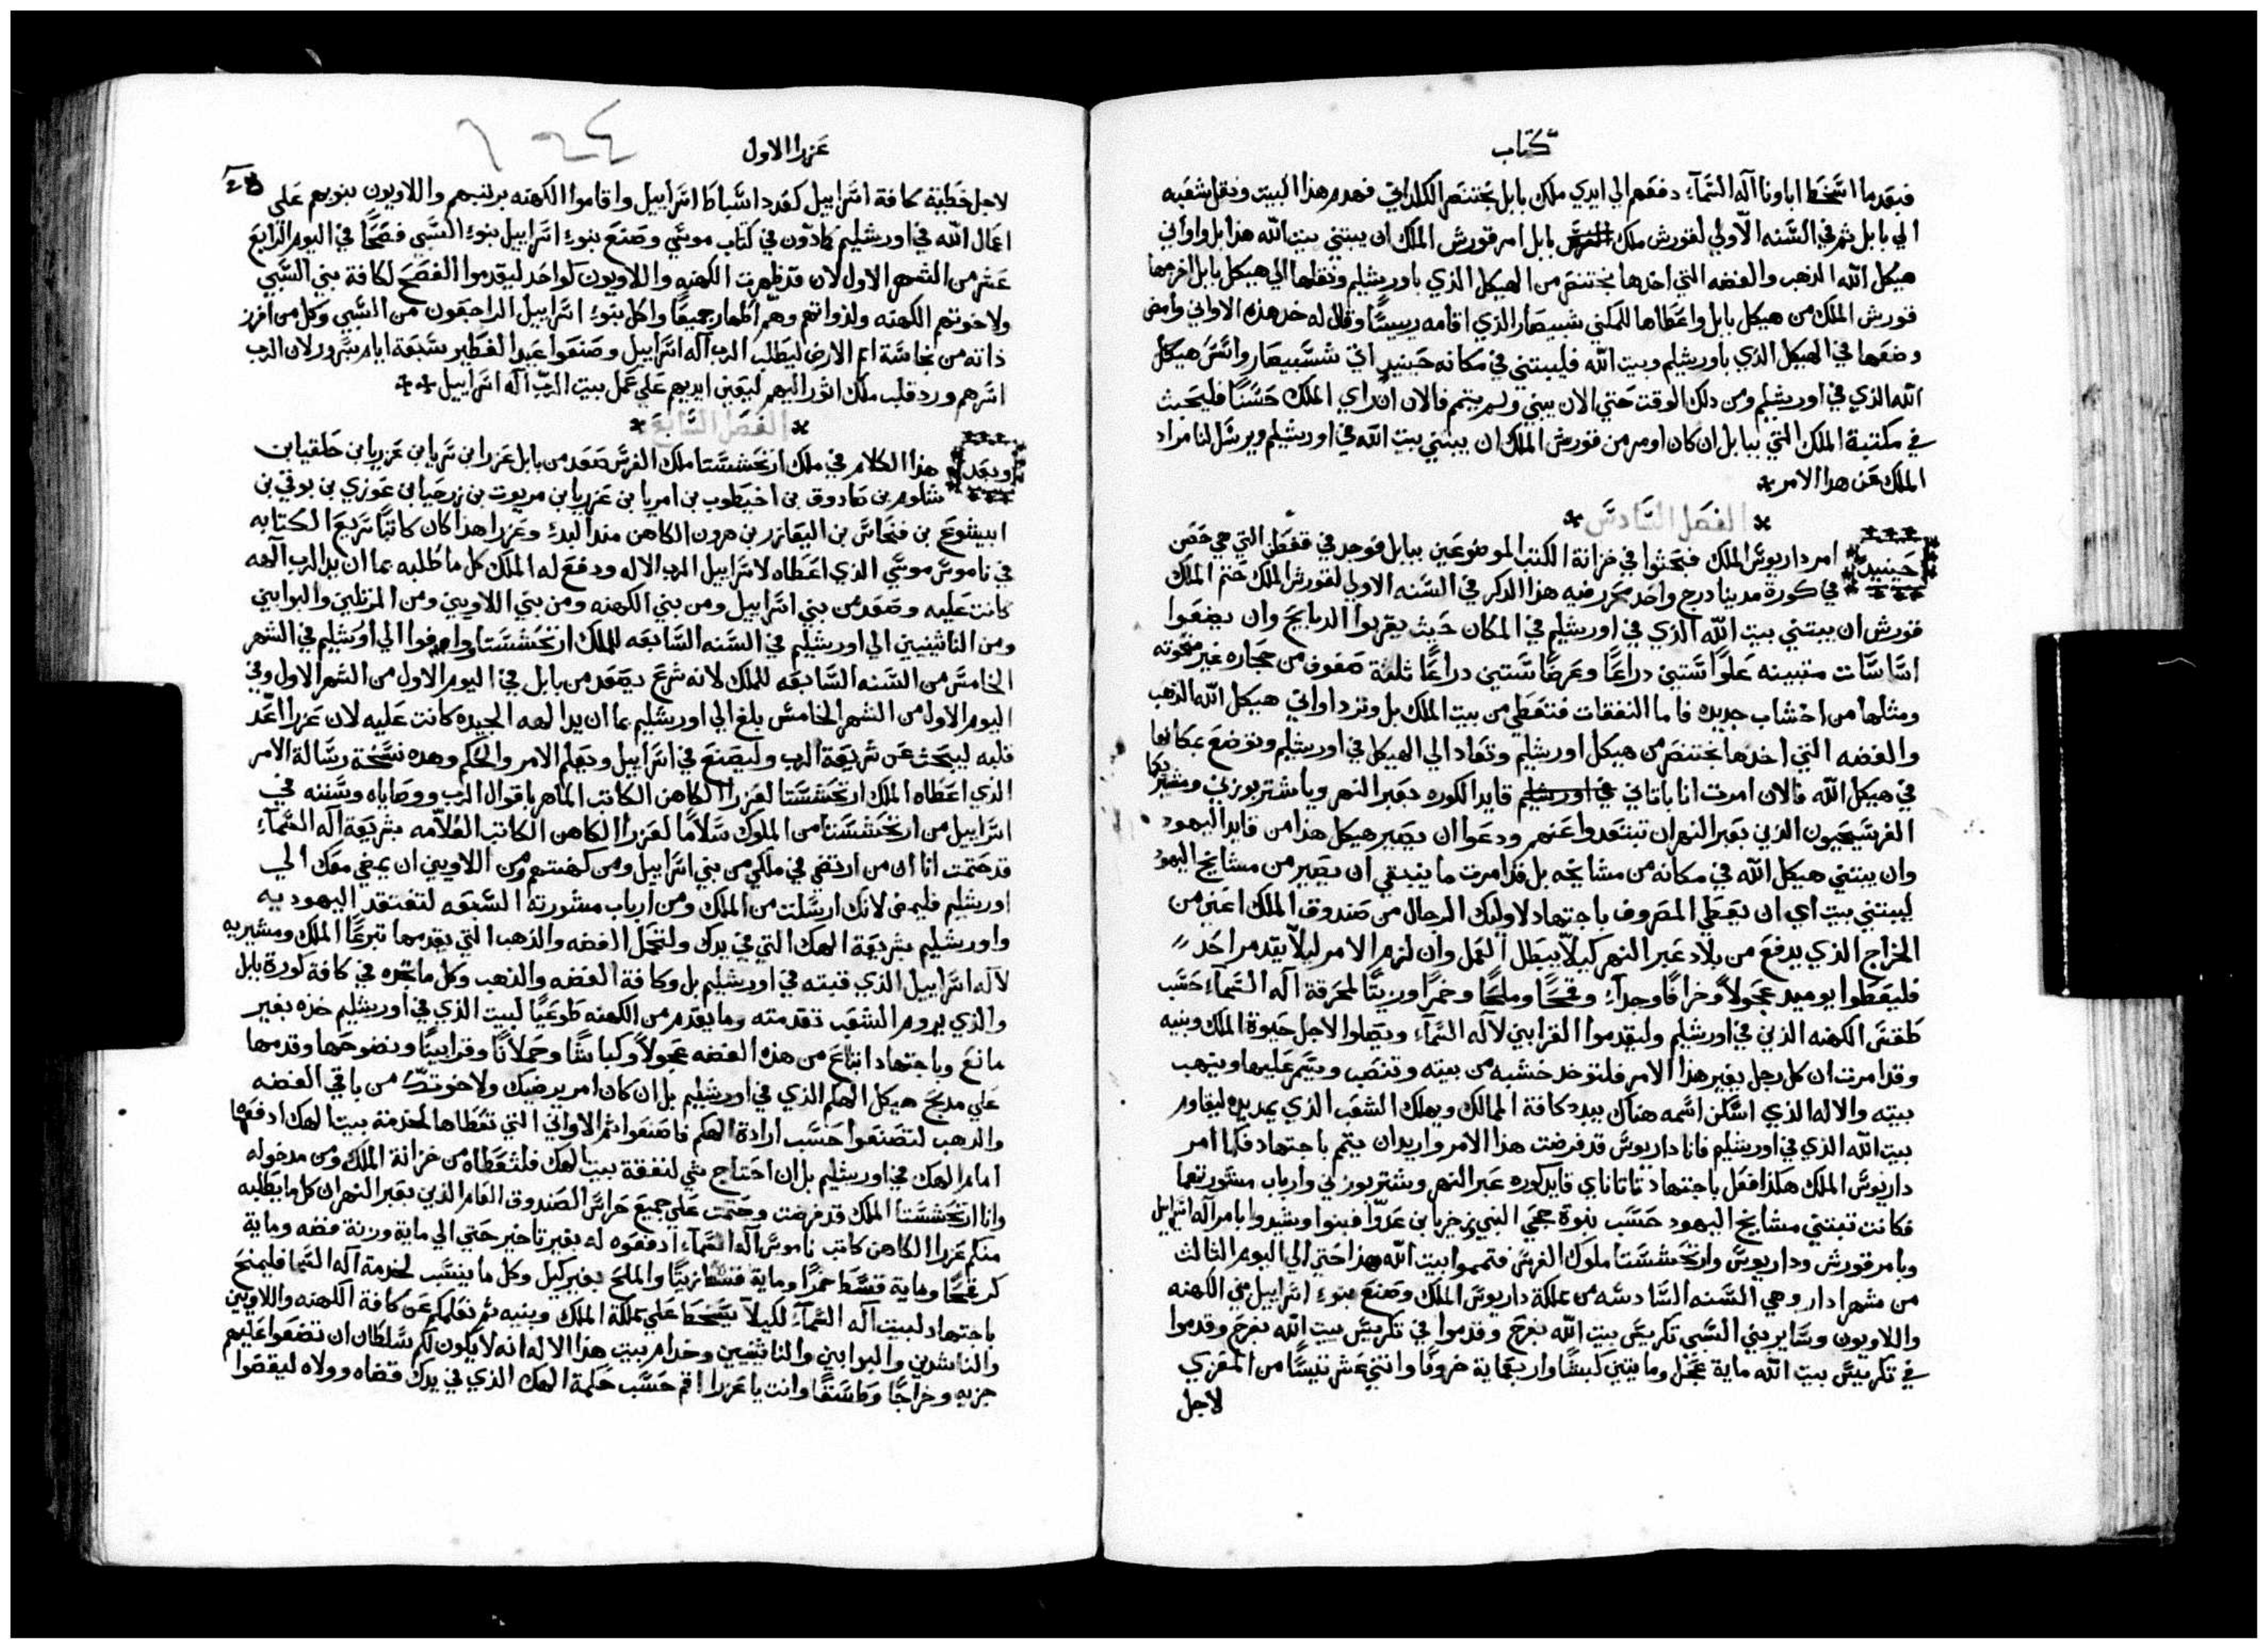 كتاب
فبعدما اسخط اباونا اله السماء دفعهم الي ايدي ملك بابل بختنصر الكلداني فهدم هذا البيت ونقل شعبه
الي بابل ثم في السنه الاولي لقورش ملك بابل امر قورش الملك ان يبتني بيت الله هذا بل واواني
هيكل الله الذهب والفضه التي اخدها بختنصر من الهيكل الذي باورشليم ونقلها الي هيكل بابل اخرجها
قورش الملك من هيكل بابل واعطاها للمكني شبيصار الذي اقامه رييسًا وقال له خد هذه الاواني وامض
وضعها في الهيكل الذي باورشليم وبيت الله فليبتني في مكانه حينيد اتي ششبيصار واسس هيكل
الله الذي في اورشليم ومن دلك الوقت حتي الان يبني ولم يتم فالان ان راي الملك حسنًا فليبحث
في مكتبة الملك التي ببابل ان كان اومر من قورش الملك ان يبتني بيت الله في اورشليم ويرسل لنا مراد
الملك عن هدا الامر *
* الفصل السادس *
حينيد امر داريوس الملك فبحثوا في خزانة الكتب الموضوعين ببابل فوجد في قفطن التي هي حصن
في كورة مدينا درج واحد محرر فيه هذا الدكر في السنه الاولي لقورش الملك ختم الملك
قورش ان يبتني بيت الله الذي في اورشليم في المكان حيث يقربوا الدبايح وان يضعوا
اساسات متبينه علوًا ستين دراعًا وعرضًا ستين دراعًا ثلثة صفوف من حجاره غير منحوته
ومثلها من اخشاب جديده فاما النفقات فتعطي من بيت الملك بل وترد اواني هيكل الله الذهب
والفضه التي اخدها بختنصر من هيكل اورشليم وتعاد الي الهيكل في اورشليم وتوضع بمكانها
في هيكل الله فالان امرت انا ياتاتاني قايد الكوره بعبر النهر ويا شتربوزني ومشيريكما
الفرسيحيون الدين بعبر النهر ان تبتعدوا عنهم ودعوا ان يصير هيكل هذا من قايد اليهود
وان يبتني هيكل الله في مكانه من مشايخه بل قد امرت ما ينبغي ان يصير من مشايخ اليهود
ليبتني بيت اي ان يعطي المصروف باجتهاد لاوليك الرجال من صندوق الملك اعني من
الخراج الذي يدفع من بلاد عبر النهر كيلا يبطل العمل وان لزم الامر ليلا يتدمر احدًا
فليعطوا يوميد عجولاً وخرافًا وجداء وقمحًا وملحًا وخمرًا وزيتًا لمحرقة اله السماء حسب
طقس الكهنه الذين في اورشليم وليقدموا القرابين لاله السماء ويصلوا لاجل حيوة الملك وبنيه
وقد امرت ان كل رجل يغير هذا الامر فلتوخد خشبه من بيته وتنصب ويسمر عليها وينهب
بيته والاله الذي اسكن اسمه هناك يبدد كافة الممالك ويهلك الشعب الذي يمد يده ليقاوم
بيت الله الذي في اورشليم فانا داريوس قد فرضت هذا الامر واريد ان يتم باجتهاد فكما امر
داريوس الملك هكذا فعل باجتهاد تاتاناي قايد كورة عبر النهر وشتربوزني وارباب مشورتهما
فكانت تبتني مشايخ اليهود حسب نبوة حجي النبي وزخريا بن عدوا فبنوا وشيدوا بامر اله اسراييل
وبامر قورش وداريوس وارتحششتا ملوك الفرس فتمموا بيت الله هذا حتي الي اليوم الثالث
من شهر ادار وهي السنه السادسه من مملكة داريوس الملك وصنع بنوء اسراييل مع الكهنه
واللاويون وساير بني السبي تكريس بيت الله بفرح وقدموا في تكريس بيت الله بفرح وقدموا
في تكريس بيت الله ماية عجل ومايتين كبشًا واربعماية خروفًا واثني عشر تيسًا من المعزي
لاجل
عزرا الاول
لاجل خطية كافة اسراييل كعدد اسباط اسراييل واقاموا الكهنه برتبهم واللاويون بنوبهم علي
اعمال الله في اورشليم كما دون في كتاب موسي وصنع بنوء اسراييل بنوء السبي فصحًا في اليوم الرابع
عشر من الشهر الاول لان قد تطهرت الكهنه واللاويون كواحد ليقدموا الفصح لكافة بني السبي
ولاخوتهم الكهنه ولذواتهم وهم اطهار جميعًا واكل بنوء اسراييل الراجعون من السبي وكل من افرز
ذاته من نجاسة امم الارض ليطلب الرب اله اسراييل وصنعوا عيد الفطير سبعة ايام بسرور لان الرب
اسرهم ورد قلب ملك اثور اليهم ليعين ايديهم علي عمل بيت الرب اله اسراييل **
* الفصل السابع *
وبعد هذا الكلام في ملك ارتحششتا ملك الفرس صعد من بابل عزرا ابن سريا ابن عزريا ابن حلقيا ابن
شلوم بن صادوق بن اخيطوب بن امريا بن عزريا بن مريوت بن زرحيا بن عوزي بن بوقي بن
ابيشوع بن فنحاس بن اليعازر بن هرون الكاهن مند البدء وعزرا هذا كان كاتبًا سريع الكتابه
في ناموس موسي الذي اعطاه لاسراييل الرب الاله ودفع له الملك كل ما طلبه بما ان يد الرب الهه
كانت عليه وصعد من بني اسراييل ومن بني الكهنه ومن بني اللاويين ومن المرتلين والبوابين
ومن الناثينيين الي اورشليم في السنه السابعه للملك ارتحششتا وافوا الي اورشليم في الشهر
الخامس من السنه السابعه للملك لانه شرع يصعد من بابل في اليوم الاول من الشهر الاول وفي
اليوم الاول من الشهر الخامس بلغ الي اورشليم بما ان يد الهه الجيده كانت عليه لان عزرا اعد
قلبه ليبحث عن شريعة الرب وليصنع في اسراييل ويعلم الامر والحكم وهده نسخة رسالة الامر
الذي اعطاه الملك ارتحششتا لعزرا الكاهن الكاتب الماهر باقوال الرب ووصاياه وسننه في
اسراييل من ارتحششتا من الملوك سلامًا لعزرا الكاهن الكاتب العلامه بشريعة اله السماء
قد حتمت انا ان من ارتضي في ملكي من بني اسراييل ومن كهنتهم ومن اللاويين ان يمضي معك الي
اورشليم فليمض لانك ارسلت من الملك ومن ارباب مشورته السبعه لتفتقد اليهوديه
واورشليم بشريعة الهك التي في يدك ولتحمل الفضه والذهب التي يقدمها تبرعًا الملك ومشيريه
لاله اسراييل الذي قبته في اورشليم بل وكافة الفضه والذهب وكل ما تجده في كافة كورة بابل
والذي يروم الشعب تقدمته وما يقدم من الكهنه طوعيًا لبيت الذي في اورشليم خده بغير
مانع وباجتهاد ابتاع من هذه الفضه عجولاً وكباشًا وحملانًا وقرابينًا ونضوحها وقدمها
علي مدبح هيكل الهكم الذي في اورشليم بل ان كان امر يرضيك ولاخوتك من باقي الفضه
والدهب لتصنعوا حسب ارادة الهكم فاصنعوا ثم الاواني التي تعطاها لخدمة بيت الهك ادفعها
امام الهك في اورشليم بل ان احتاج شي لنفقة بيت الهك فلتعطاه من خزانة الملك ومن مدخوله
وانا ارتحششتا الملك قد فرضت وحتمت علي جميع حراس الصندوق العام الذين بعبر النهر ان كل ما يطلبه
منكم عزرا الكاهن كاتب ناموس اله السماء ادفعوه له بغير تاخير حتي الي ماية وزنة فضه وماية
كر قمحًا وماية قسط خمرًا وماية قسط زيتًا والملح بغير كيل وكل ما ينسب لخدمة اله السما فليمنح
باجتهاد لبيت اله السماء لكيلا يسخط علي مملكة الملك وبنيه ثم نعلمكم عن كافة الكهنه واللاويين
والناشدين والبوابين والناثينيين وخدام بيت هذا الاله انه لا يكون لكم سلطان ان تضعوا عليهم
جزيه وخراجًا وانت يا عزرا اقم حسب حكمة الهك الذي في يدك قضاه وولاه ليقضوا